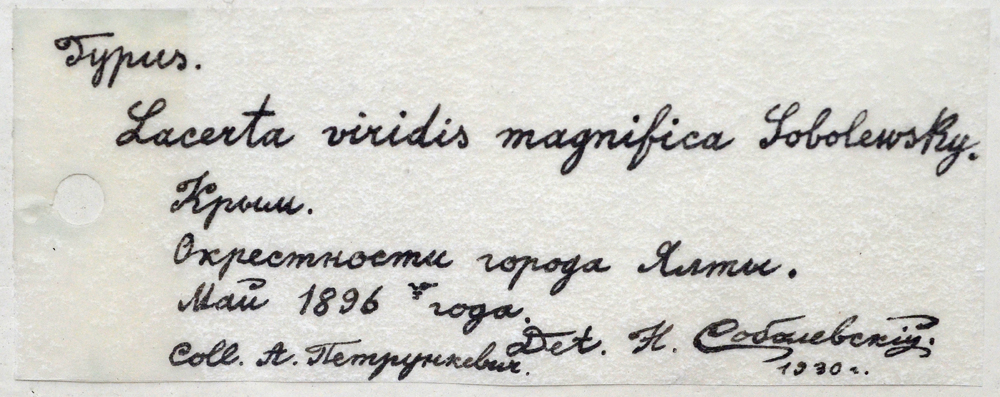 Typus.
Lacerta viridis magnifica Sobolewsky.
Крым.
Окрестности города Ялты.
Май 1896 года.
Coll. А. Петрункевич. Det. Н. Соболевскій.
1930 г.